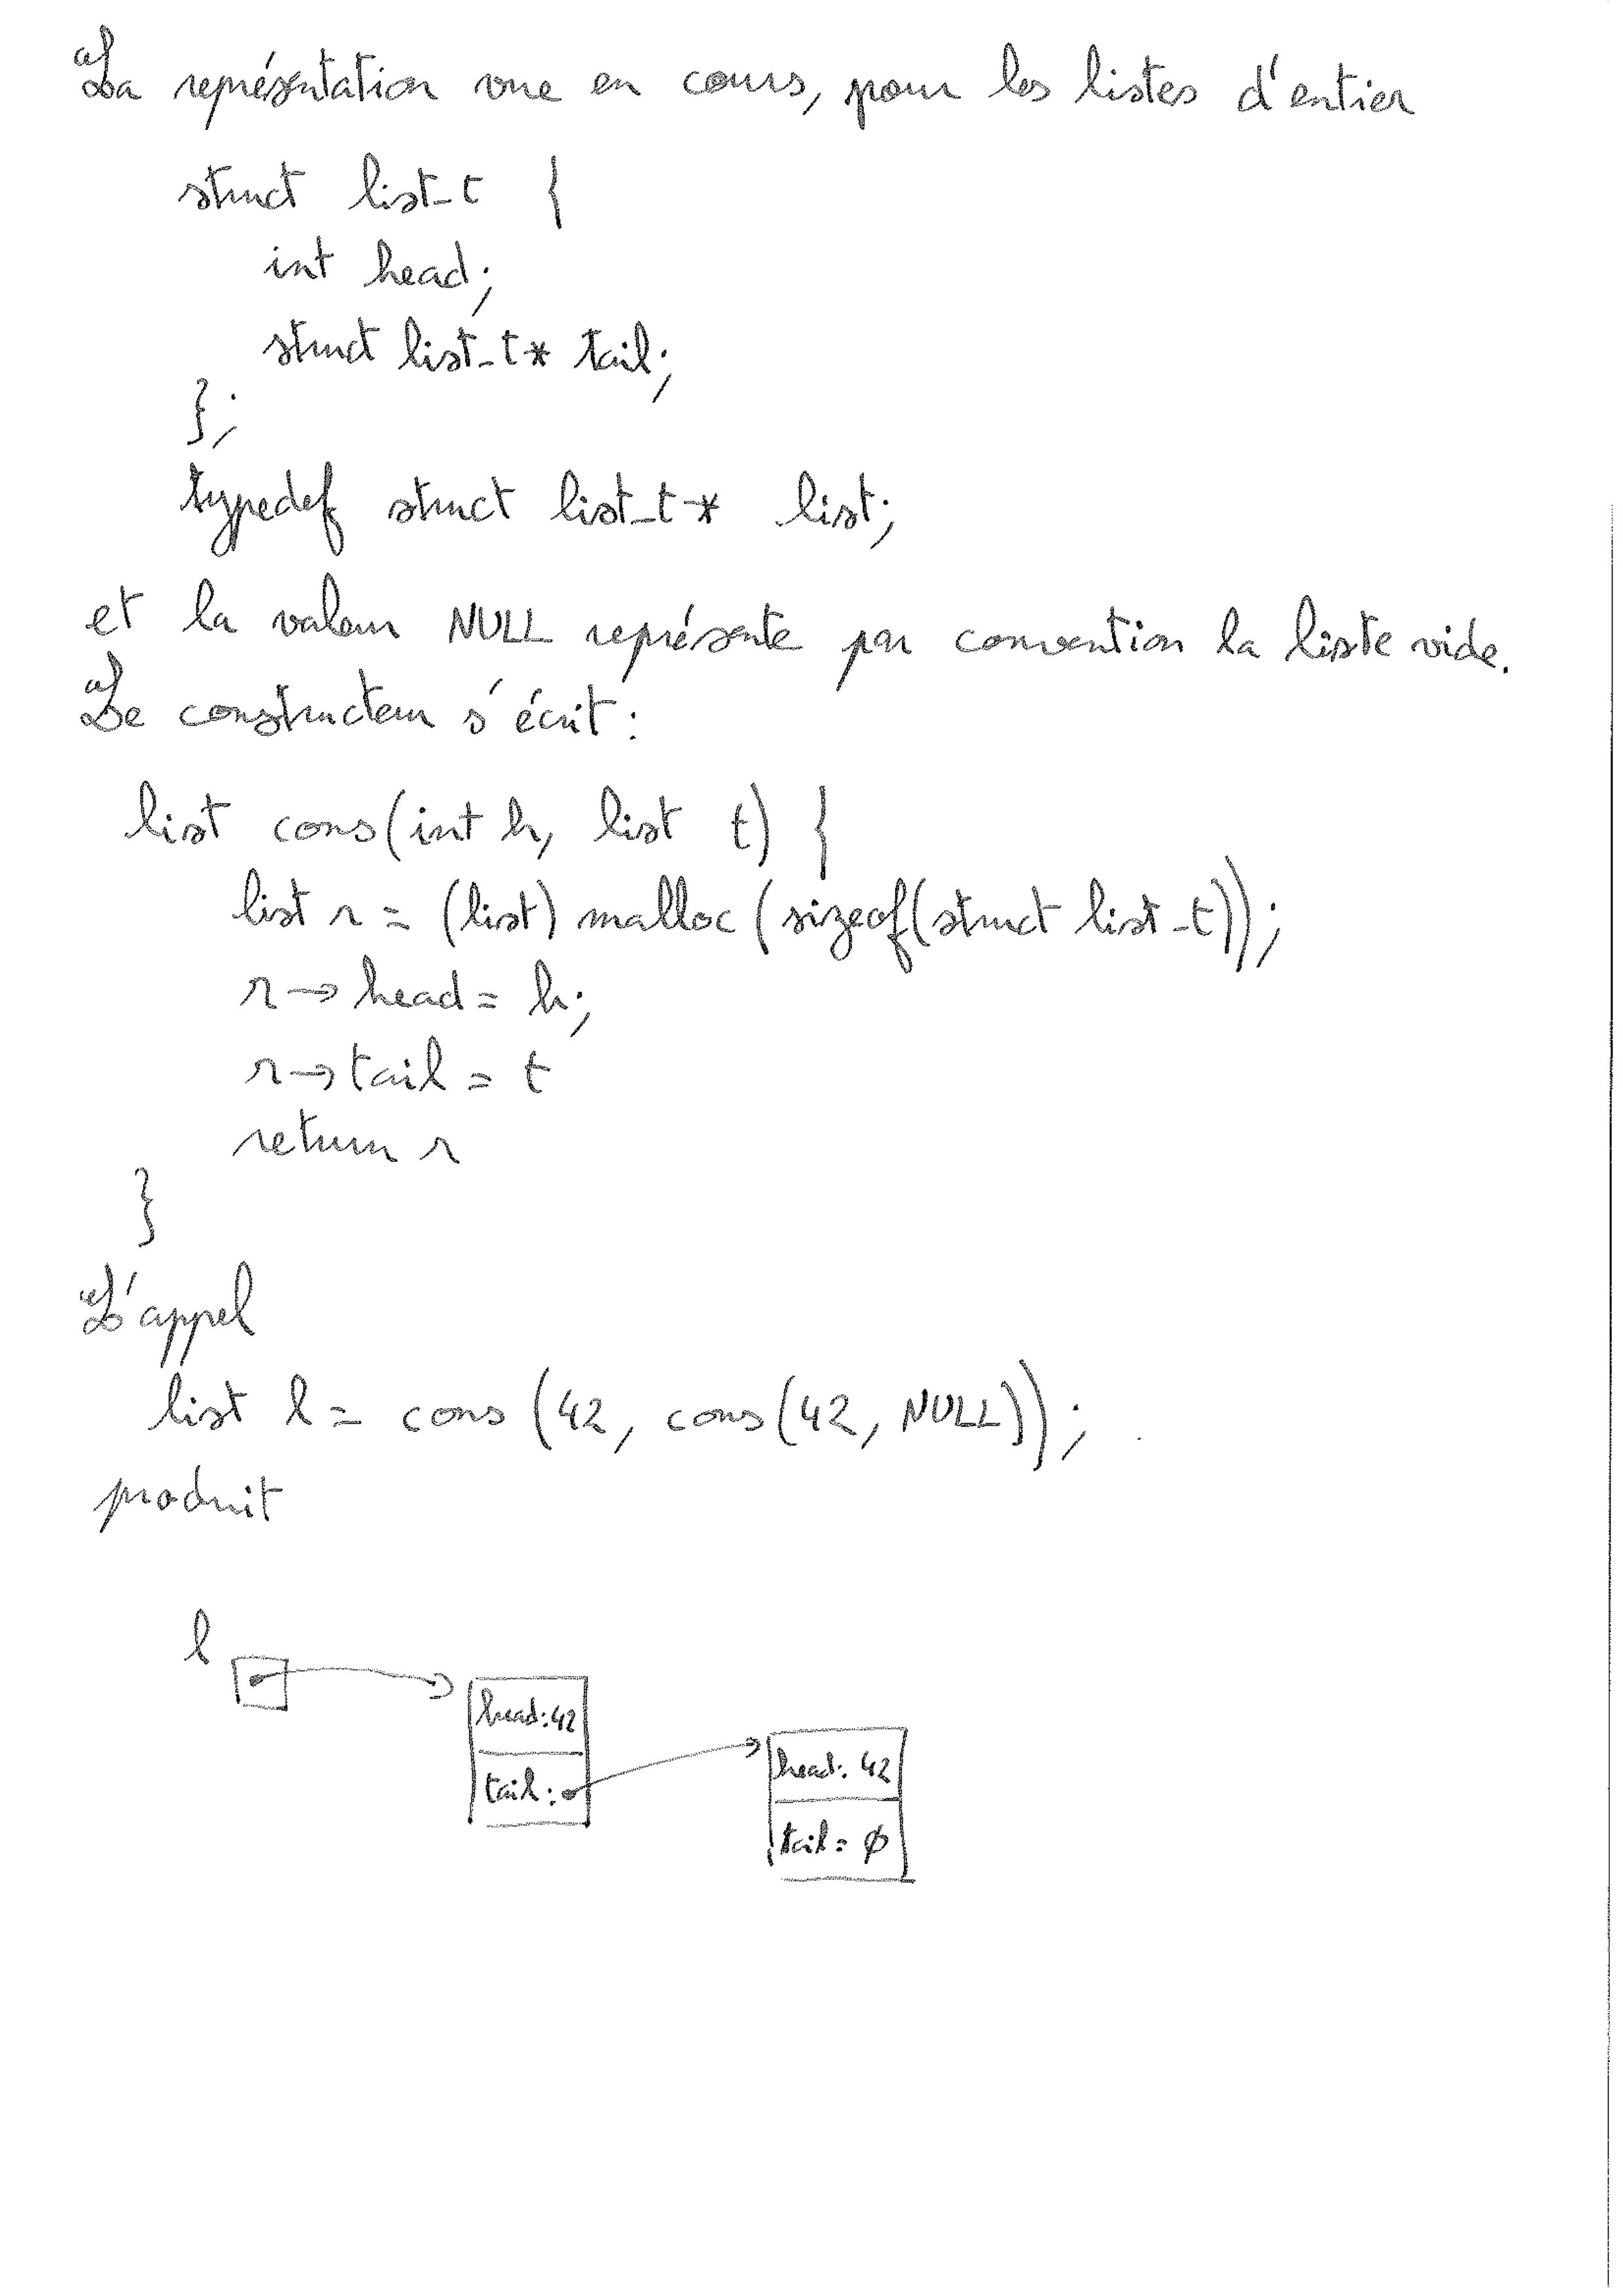 La représentation vue en cours, pour les listes d'entier
struct list_t {
int head;
struct list_t* tail;
};
typedef struct list_t* list;
et la valeur NULL représente par convention la liste vide.
Le constructeur s'écrit :
list cons(int h, list t) {
list r = (list) malloc (sizeof(struct list_t));
r→head = h;
r→tail = t
return r
}
L'appel
list l = cons (42, cons(42, NULL));
produit
l
head:42
tail:
head: 42
tail= ∅